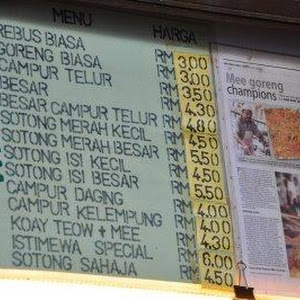 MENU HARGA
REBUS BIASA RM 3.00
GORENG BIASA RM 3.00
CAMPUR TELUR RM 3.50
BESAR RM 4.30
BESAR CAMPUR TELUR RM 4.80
SOTONG MERAH KECIL RM 4.50
SOTONG MERAH BESAR RM 5.50
SOTONG ISI KECIL RM 4.50
SOTONG ISI BESAR RM 5.50
CAMPUR DAGING RM 4.00
CAMPUR KELEMPUNG RM 4.00
KOAY TEOW + MEE RM 4.30
ISTIMEWA SPECIAL RM 6.00
SOTONG SAHAJA RM 4.50
Mee goreng
champions